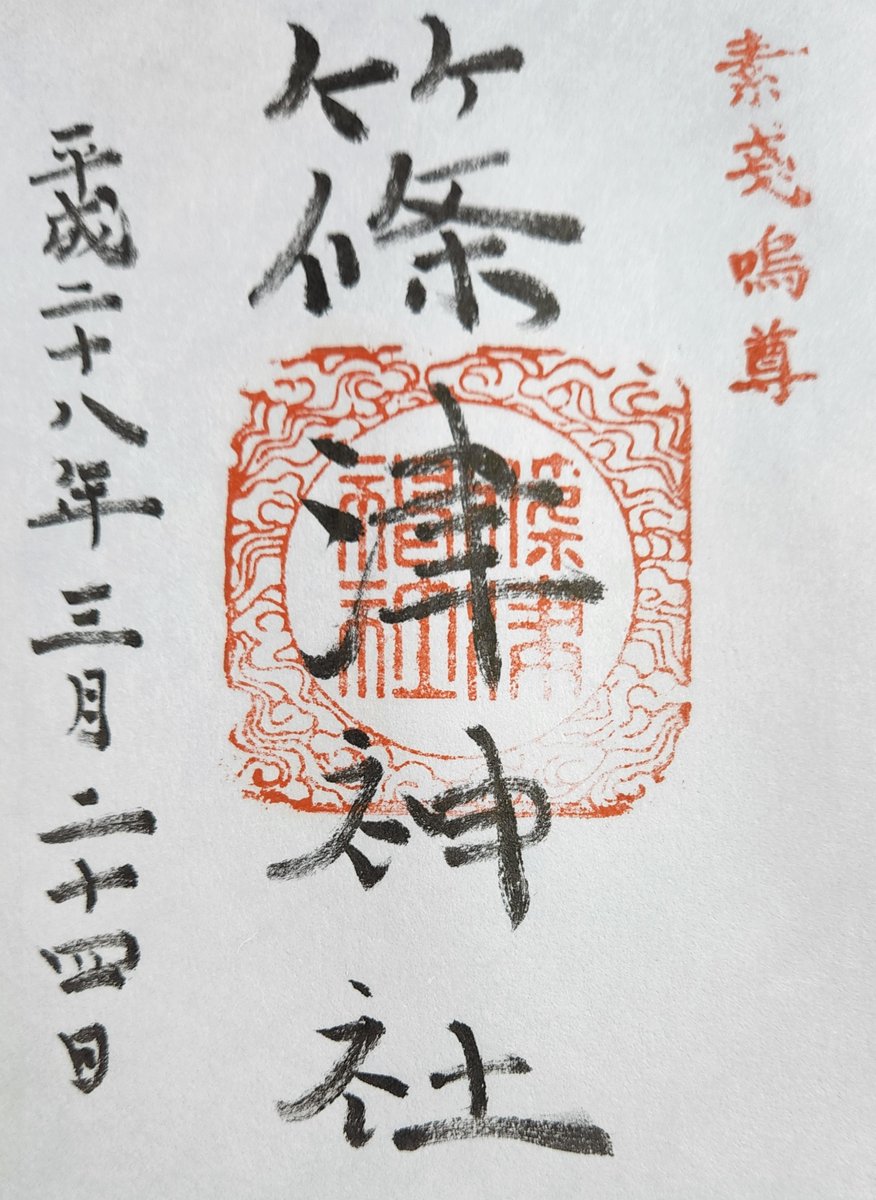 素戔嗚尊
篠津神社
篠津
神社
平成二十八年三月二十四日